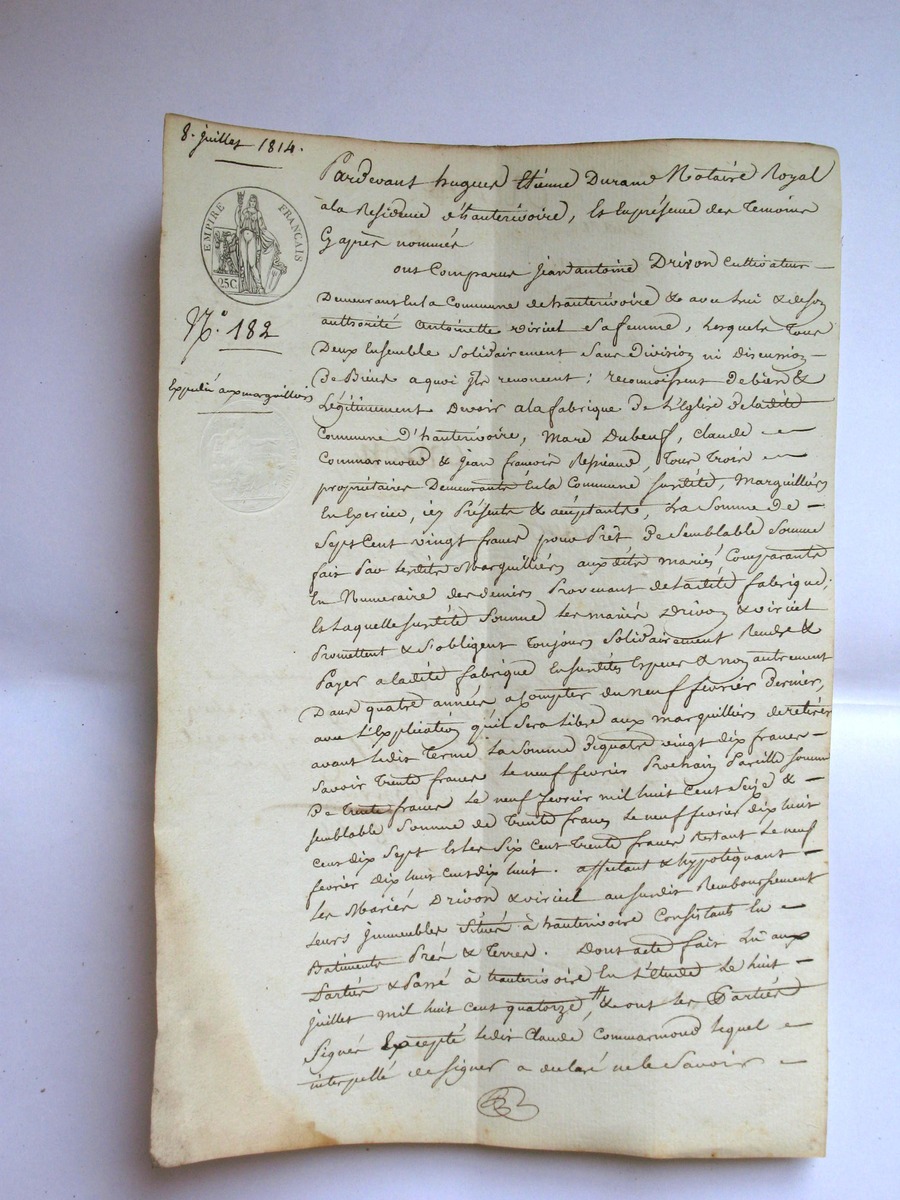 8. juillet 1814.
EMPIRE FRANÇAIS
25C.
N.° 182
Expedié aux marguilliers
Pardevant hugues Etienne Durand Notaire Royal
a la Residence d'hauterivoire, Et En présence des Temoins
Cy après nommés
ont Comparus jean antoine Drivon Cultivateur
Demeurant En la Commune de hauterivoire & avec lui & de son
authorité Antoinette viricel sa femme, Lesquels Tous
Deux Ensemble Solidairement Sans Division ni Discussion
de Biens a quoi ils renoncent; reconnoissent de bien &
Légitimement Devoir a la fabrique de L'Eglise de ladite
Commune D'hauterivoire, Marc Dubeuf, Claude
Commarmond & jean françois Tous Trois
propriétaires Demeurants En la Commune susdite, Marguilliers
En Exercice, icy Présents & acceptants, La Somme de
Sept Cent vingt francs pour Prêt de Semblable Somme
fait Par lesdits Marguilliers auxdits mariés Comparants
En Numeraire des deniers Provenant de ladite fabrique;
Et Laquelle susdite Somme Les mariés Drivon & viricel
Promettent & S'obligent Toujours Solidairement Rendre &
Payer a ladite fabrique En susdites Especes & non autrement
Dans quatre années a Compter du neuf février Dernier,
avec L'Explication qu'il Sera Libre aux marguilliers de retirer
avant ledit Terme La Somme de quatre vingt dix francs
Savoir Trente francs le neuf février Prochain Pareille somme
De Trente francs Le neuf février mil huit Cent Seize &
semblable Somme de Trente francs Le neuf février dix huit
cent dix Sept Et les Six Cent Trente francs Restant Le neuf
février dix huit cent dix huit. affectant & hypotéquant
Les Mariés Drivon & viricel au susdit Remboursement
Leurs jmmeubles Situés à hauterivoire Consistants En
Batiments Prés & Terres. Dont acte fait Lû aux
Parties & Passé à hauterivoire En L'étude Le huit
juillet mil huit cent quatorze, & ont les Parties
Signés Excepté ledit Claude Commarmond lequel
interpellé de signer a declaré ne le Savoir